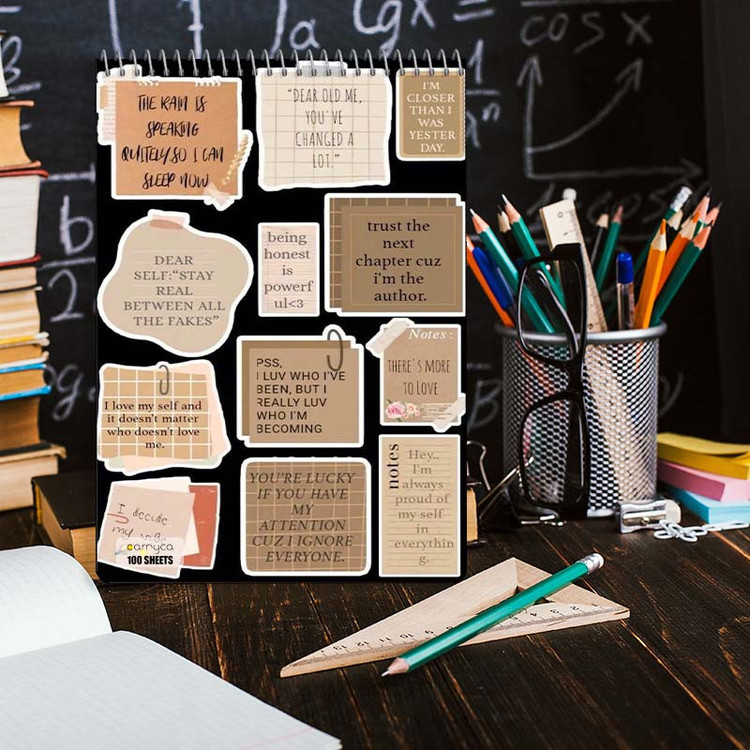 THE RAIN IS
SPEAKING
QUITELY SO I CAN
SLEEP NOW
"DEAR OLD ME,
YOU'VE
CHANGED A
LOT."
I'M
CLOSER
THAN I
WAS
YESTER
DAY.
DEAR
SELF:"STAY
REAL
BETWEEN ALL
THE FAKES"
being
honest
is
powerf
ul<3
trust the
next
chapter cuz
i'm the
author.
I love my self and
it doesn't matter
who doesn't love
me.
PSS,
I LUV WHO I'VE
BEEN, BUT I
REALLY LUV
WHO I'M
BECOMING
Notes:
THERE'S MORE
TO LOVE
I decide
my
carnyca
100 SHEETS
YOU'RE LUCKY
IF YOU HAVE
MY
ATTENTION
CUZ I IGNORE
EVERYONE.
notes
Hey..
I'm
always
proud of
my self
in
everythin
g.
cos x